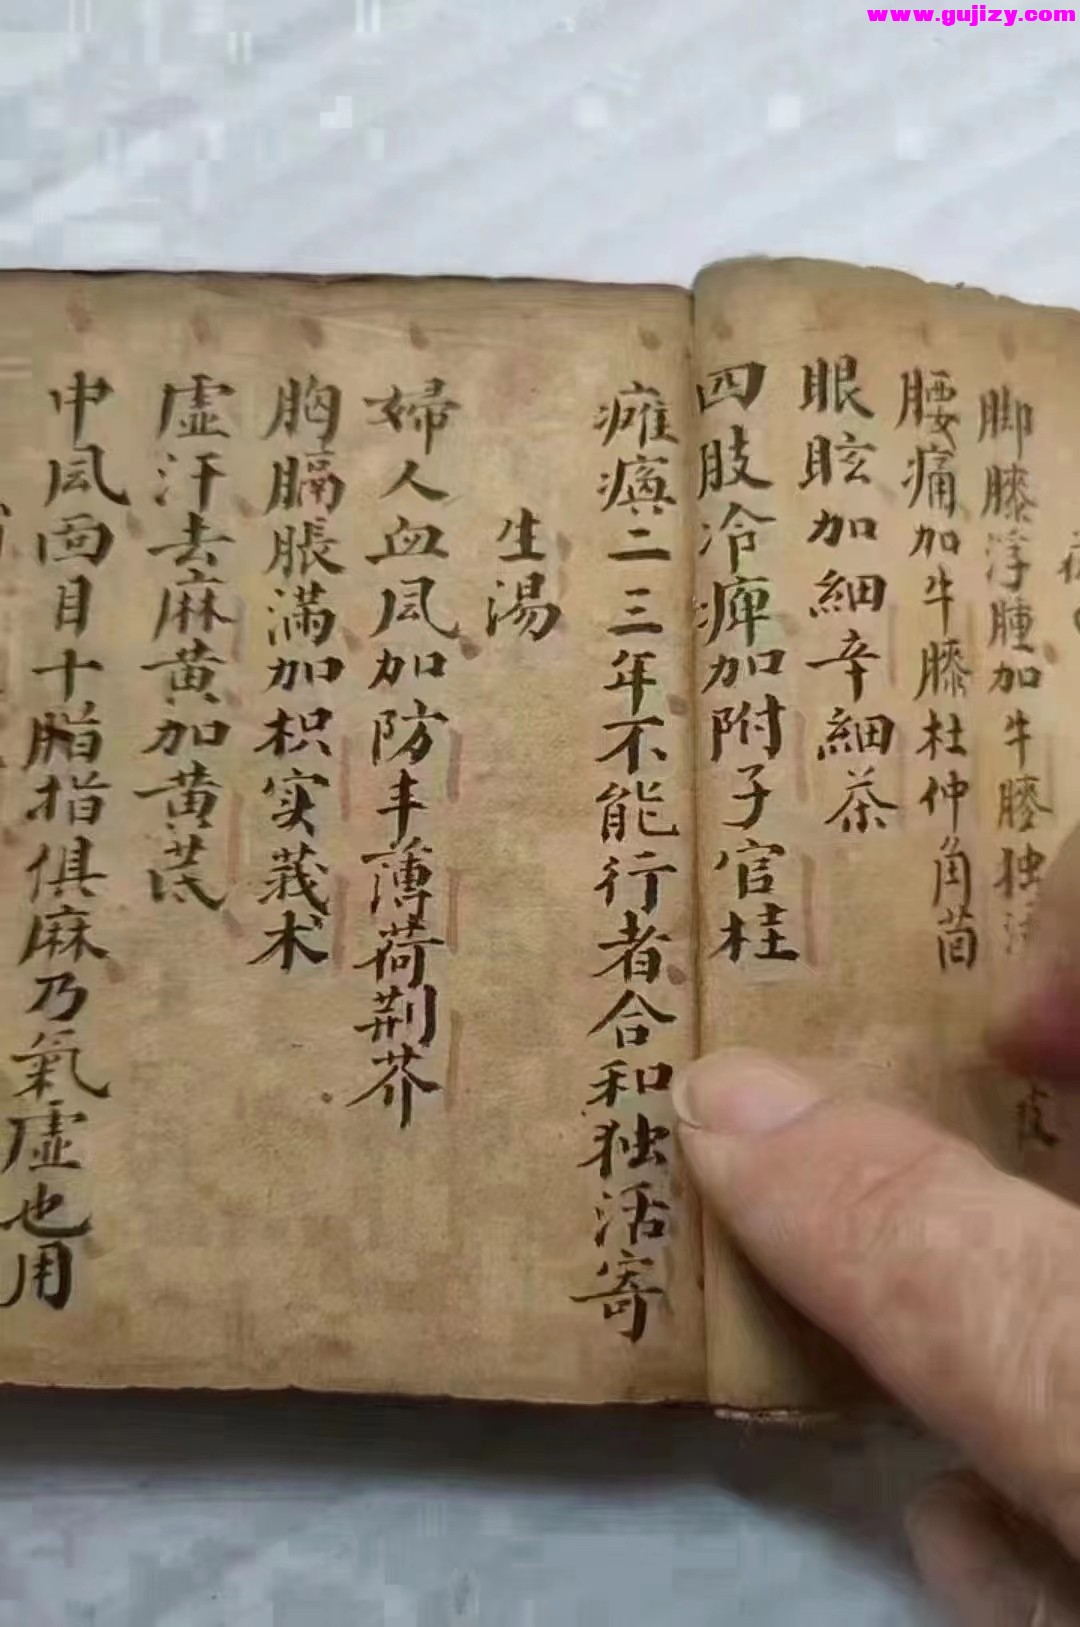 www.gujizy.com
脚膝浮腫加牛膝独活
腰痛加牛膝杜仲角茴
眼眩加細辛細茶
四肢冷痺加附子官桂
瘫痪二三年不能行者合和独活寄
生湯
婦人血风加防丰薄荷荆芥
胸膈脹满加枳实莪术
虚汗去麻黄加黄芪
中风面目十脂指俱麻乃氣虚也用